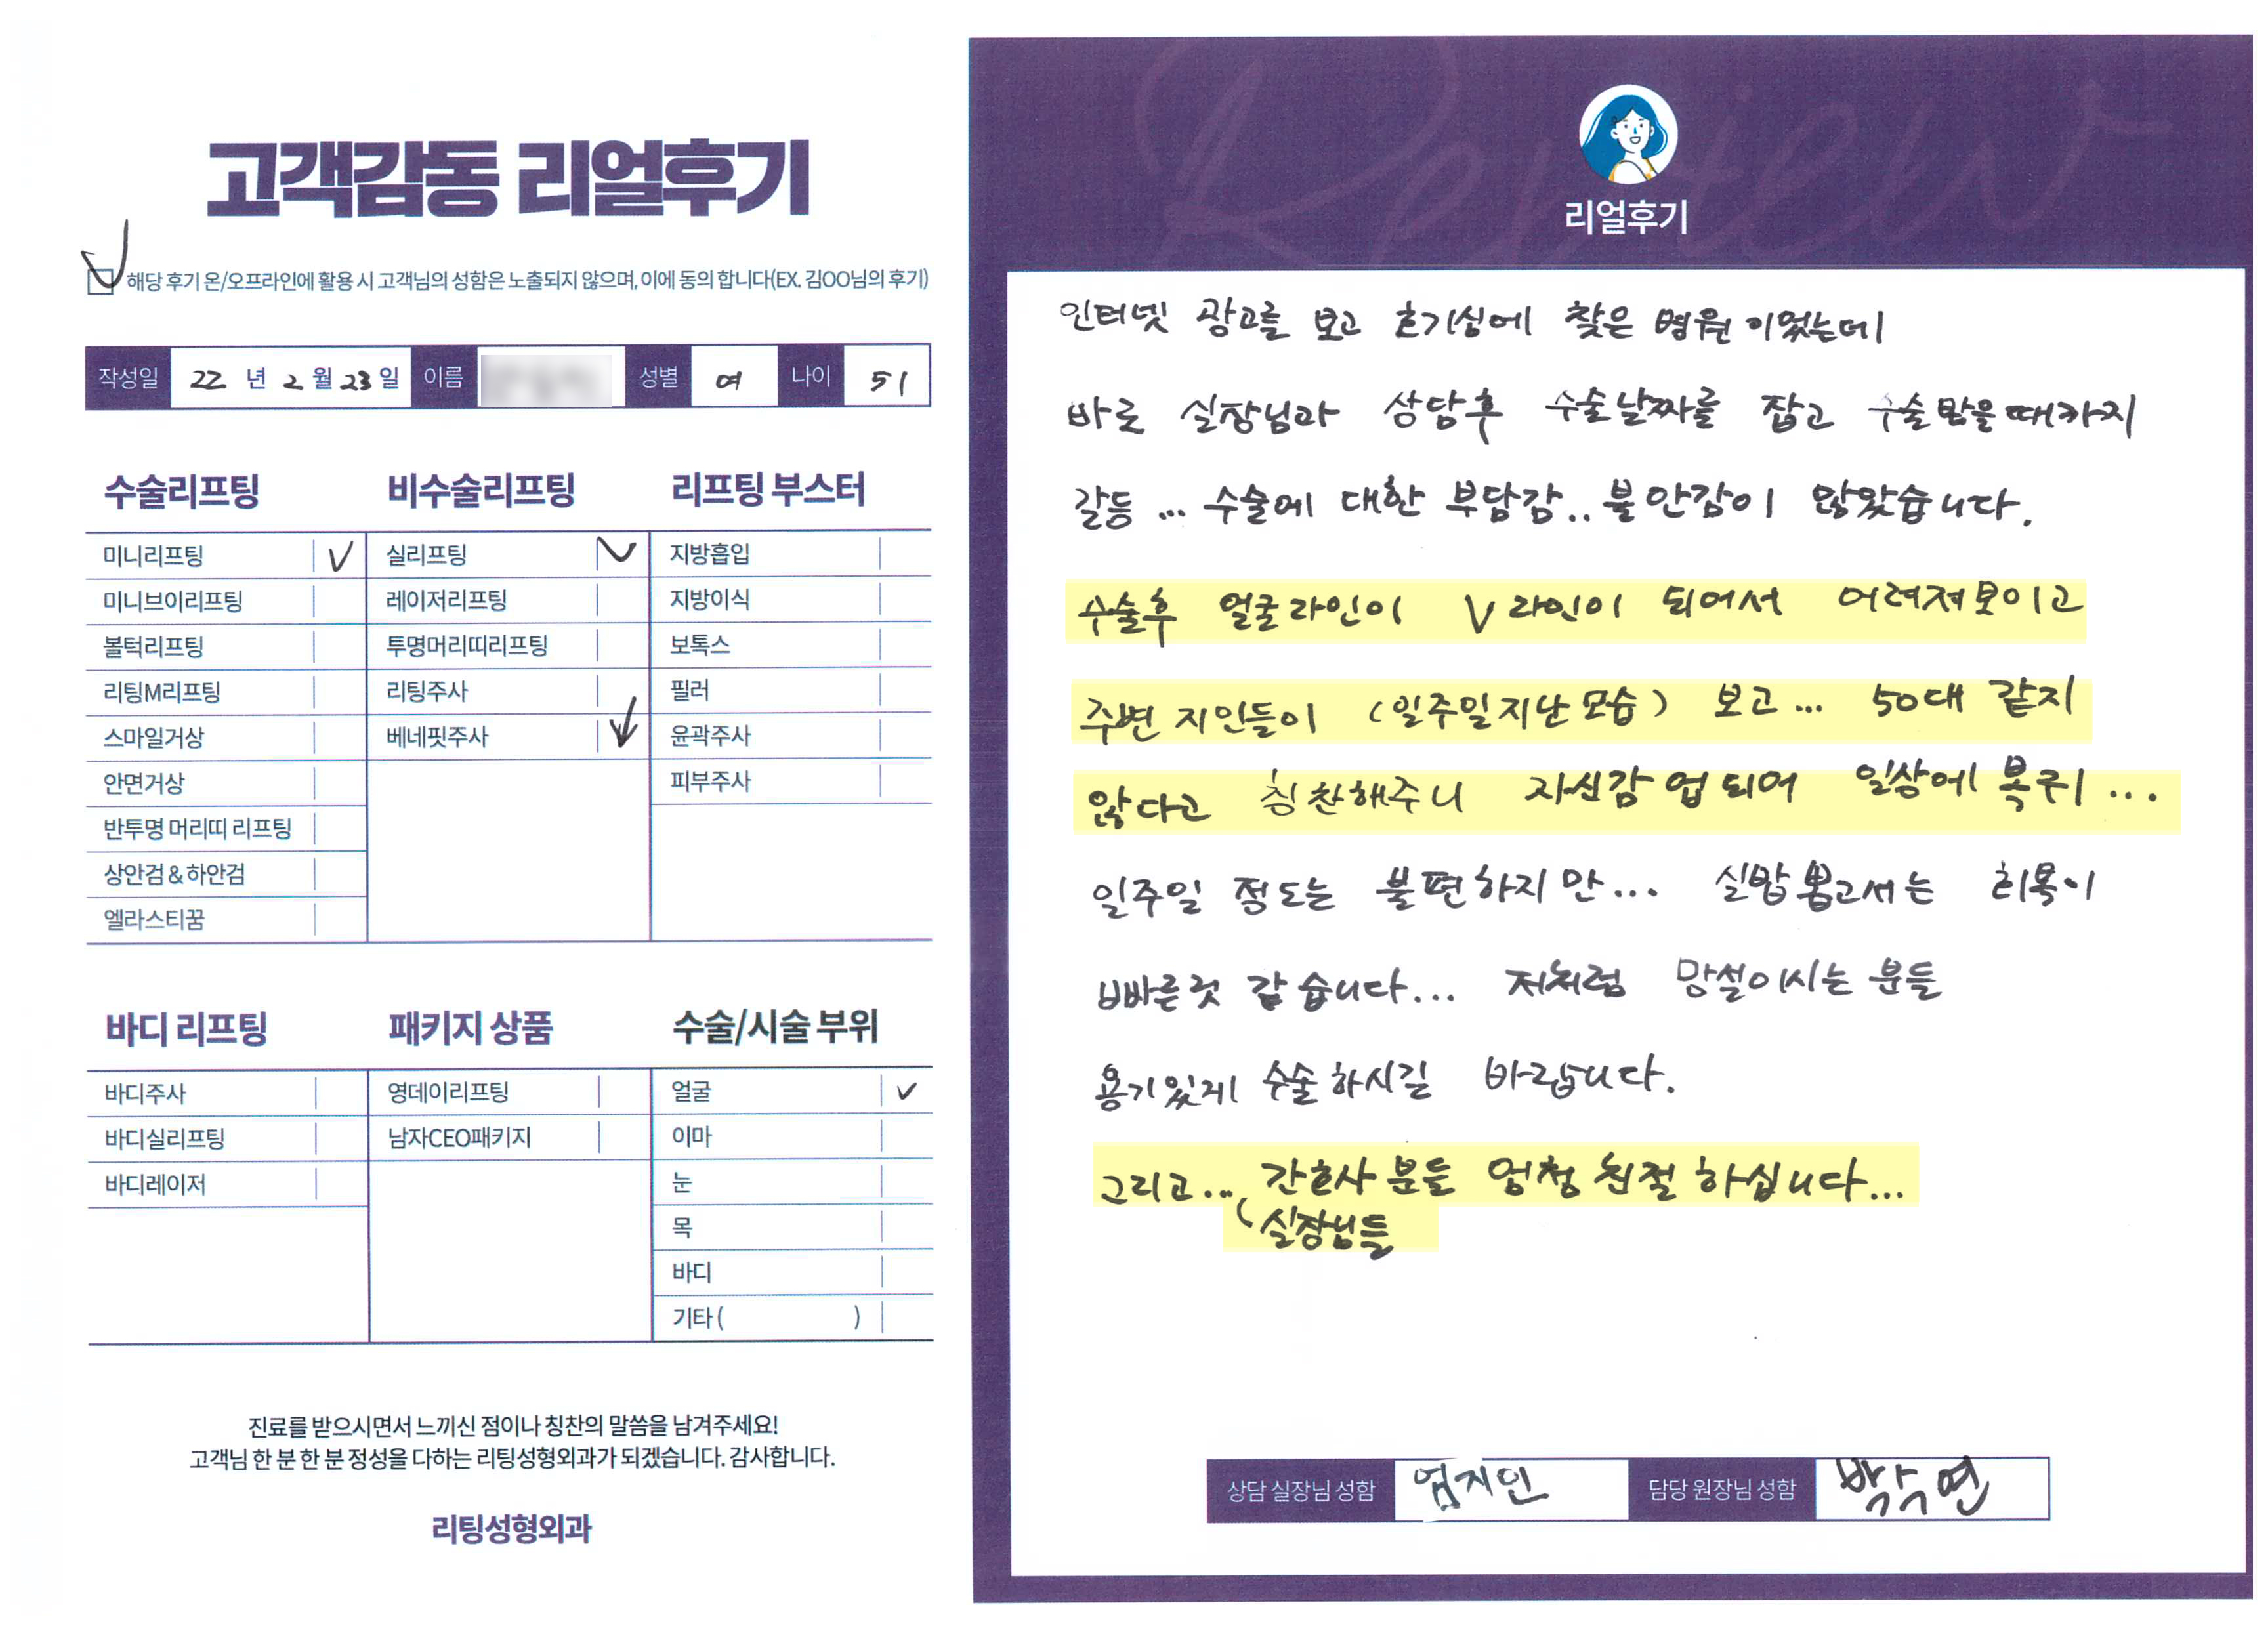 고객감동 리얼후기
해당 후기 온/오프라인에 활용 시 고객님의 성함은 노출되지 않으며, 이에 동의 합니다(EX. 김OO님의 후기)
작성일 22 년 2 월 23 일 이름 성별 여 나이 51
수술리프팅
미니리프팅
미니브이리프팅
볼턱리프팅
리팅M리프팅
스마일거상
안면거상
반투명 머리띠 리프팅
상안검 & 하안검
엘라스티꿈
비수술리프팅
실리프팅
레이저리프팅
투명머리띠리프팅
리팅주사
베네핏주사
리프팅 부스터
지방흡입
지방이식
보톡스
필러
윤곽주사
피부주사
바디 리프팅
바디주사
바디실리프팅
바디레이저
패키지 상품
영데이리프팅
남자CEO패키지
수술/시술 부위
얼굴
이마
눈
목
바디
기타 ( )
진료를 받으시면서 느끼신 점이나 칭찬의 말씀을 남겨주세요!
고객님 한 분 한 분 정성을 다하는 리팅성형외과가 되겠습니다. 감사합니다.
리팅성형외과
Review
리얼후기
인터넷 광고를 보고 호기심에 찾은 병원 이었는데
바로 실장님과 상담후 수술날짜를 잡고 수술받을때까지
갈등 ... 수술에 대한 부담감.. 불안감이 많았습니다.
수술후 얼굴라인이 V라인이 되어서 어려져보이고
주변 지인들이 (일주일지난 모습) 보고... 50대 같지
않다고 칭찬해주니 자신감 업 되어 일상에 복귀 ...
일주일 정도는 불편하지만... 실밥 뽑고서는 회복이
빠른것 같습니다... 저처럼 망설이시는 분들
용기있게 수술하시길 바랍니다.
그리고... 간호사 분들 엄청 친절하십니다...
실장님들
상담 실장님 성함 엄지인 담당 원장님 성함 박수연